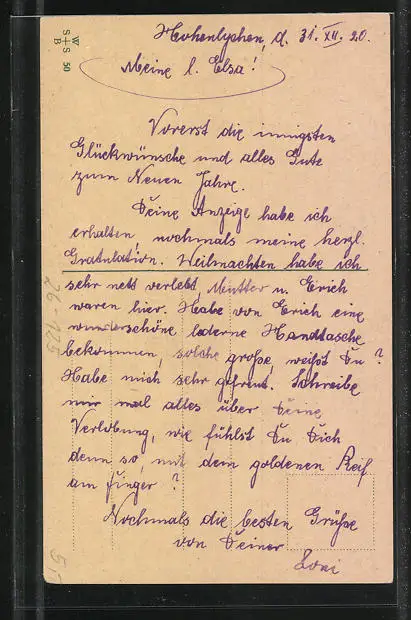 W
S+S
B
50
Hohenlychen, d. 31. XII. 20.
Meine l. Elsa!
Vorerst die innigsten
Glückwünsche und alles Gute
zum Neuen Jahre.
Deine Anzeige habe ich
erhalten, nochmals meine herzl.
Gratulation. Weihnachten habe ich
sehr nett verlebt, Mutter u. Erich
waren hier. Habe von Erich eine
wunderschöne lederne Handtasche
bekommen, solche große, weißt Du?
Habe mich sehr gefreut. Schreibe
mir mal alles über Deine
Verlobung, wie fühlst Du Dich
denn so, mit dem goldenen Reif
am Finger?
Nochmals die besten Grüße
von Deiner
Loni